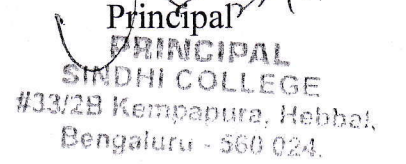 Principal
PRINCIPAL
SINDHI COLLEGE
#33/2B Kempapura, Hebbal,
Bengaluru - 560 024.